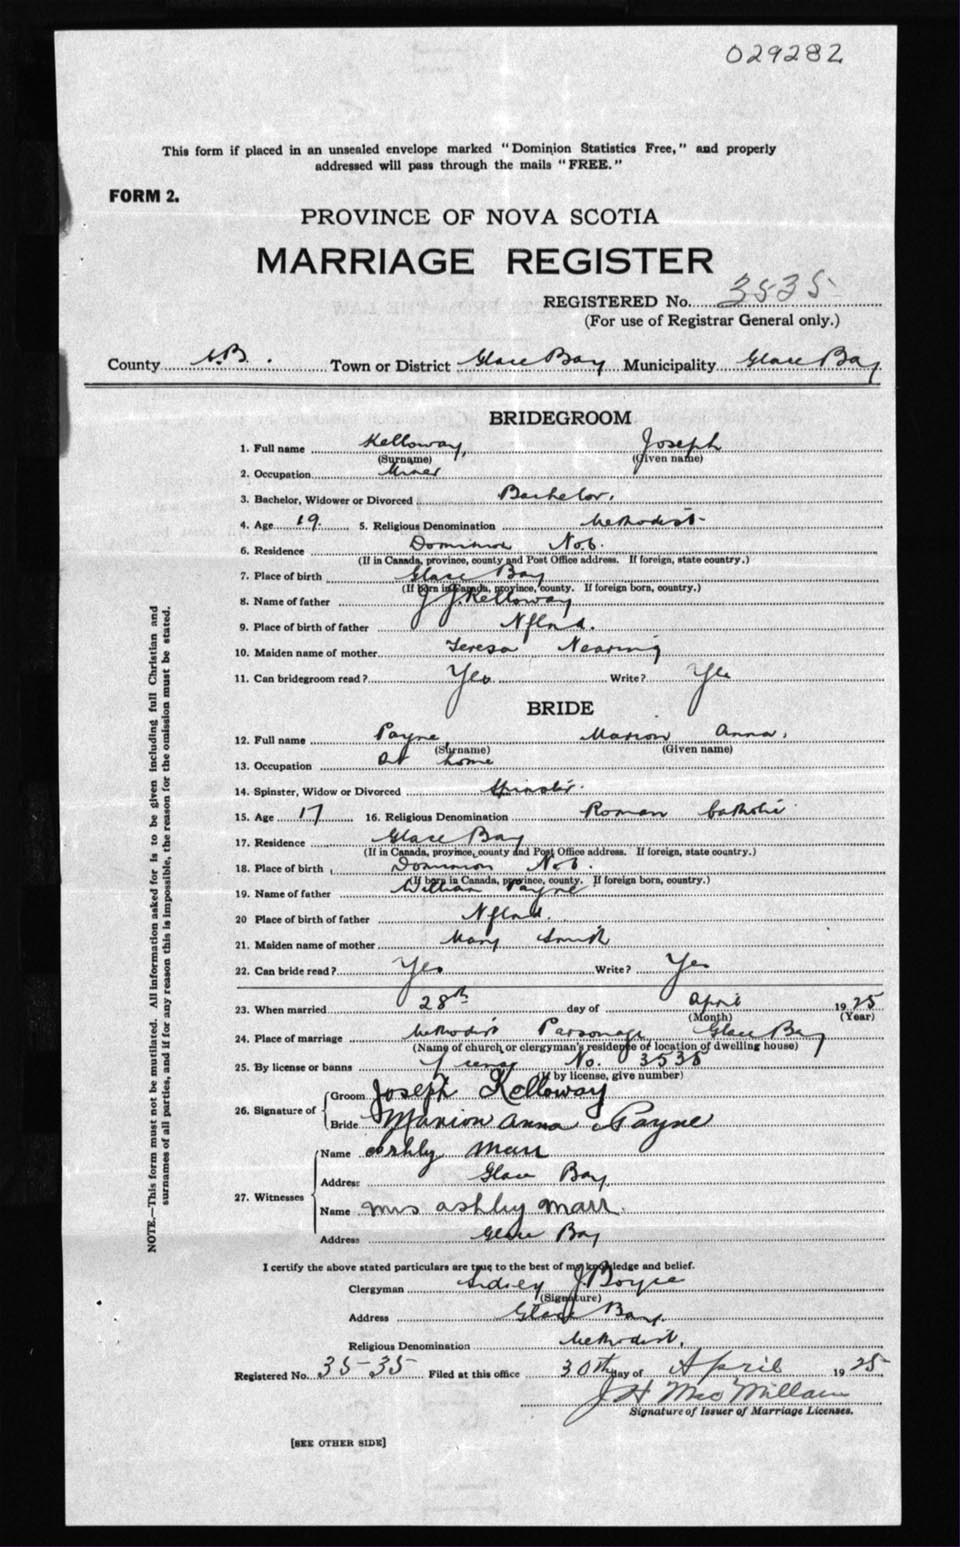 029282
This form if placed in an unsealed envelope marked "Dominion Statistics Free," and properly
addressed will pass through the mails "FREE."
FORM 2.
PROVINCE OF NOVA SCOTIA
MARRIAGE REGISTER
REGISTERED No. 3535
(For use of Registrar General only.)
County C.B. Town or District Glace Bay Municipality Glace Bay
BRIDEGROOM
1. Full name Kelloway, Joseph
(Surname) (Given name)
2. Occupation Miner
3. Bachelor, Widower or Divorced Bachelor.
4. Age 19. 5. Religious Denomination Methodist
6. Residence Dominion No. 6.
(If in Canada, province, county and Post Office address. If foreign, state country.)
7. Place of birth Glace Bay
(If born in Canada, province, county. If foreign born, country.)
8. Name of father J. J. Kelloway
9. Place of birth of father Nflnd.
10. Maiden name of mother Teresa Nearing
11. Can bridegroom read? Yes. Write? Yes
BRIDE
12. Full name Payne, Marion Anna.
(Surname) (Given name)
13. Occupation at home
14. Spinster, Widow or Divorced Spinster.
15. Age 17 16. Religious Denomination Roman Catholic
17. Residence Glace Bay
(If in Canada, province, county and Post Office address. If foreign, state country.)
18. Place of birth Dominion No 6.
(If born in Canada, province, county. If foreign born, country.)
19. Name of father William Payne
20 Place of birth of father Nflnd.
21. Maiden name of mother Mary Smith
22. Can bride read? Yes Write? Yes
23. When married 28th day of April 1925
(Month) (Year)
24. Place of marriage Methodist Parsonage Glace Bay
(Name of church, or clergyman's residence or location of dwelling house)
25. By license or banns No. 3535
(If by license, give number)
26. Signature of Groom Joseph Kelloway
Bride Marion Anna Payne
27. Witnesses Name Ashly Marr
Address Glace Bay
Name Mrs Ashley Marr.
Address Glace Bay
I certify the above stated particulars are true to the best of my knowledge and belief.
Clergyman Sidney J. Boyce
(Signature)
Address Glace Bay.
Religious Denomination Methodist.
Registered No. 3535 Filed at this office 30th day of April 1925
J H MacMillan
Signature of Issuer of Marriage Licenses.
[SEE OTHER SIDE]
NOTE.—This form must not be mutilated. All information asked for is to be given including full Christian and
surnames of all parties, and if for any reason this is impossible, the reason for the omission must be stated.